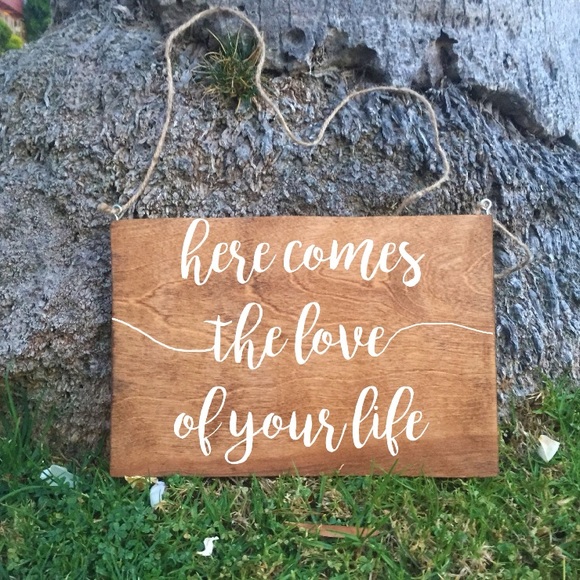 here comes
the love
of your life